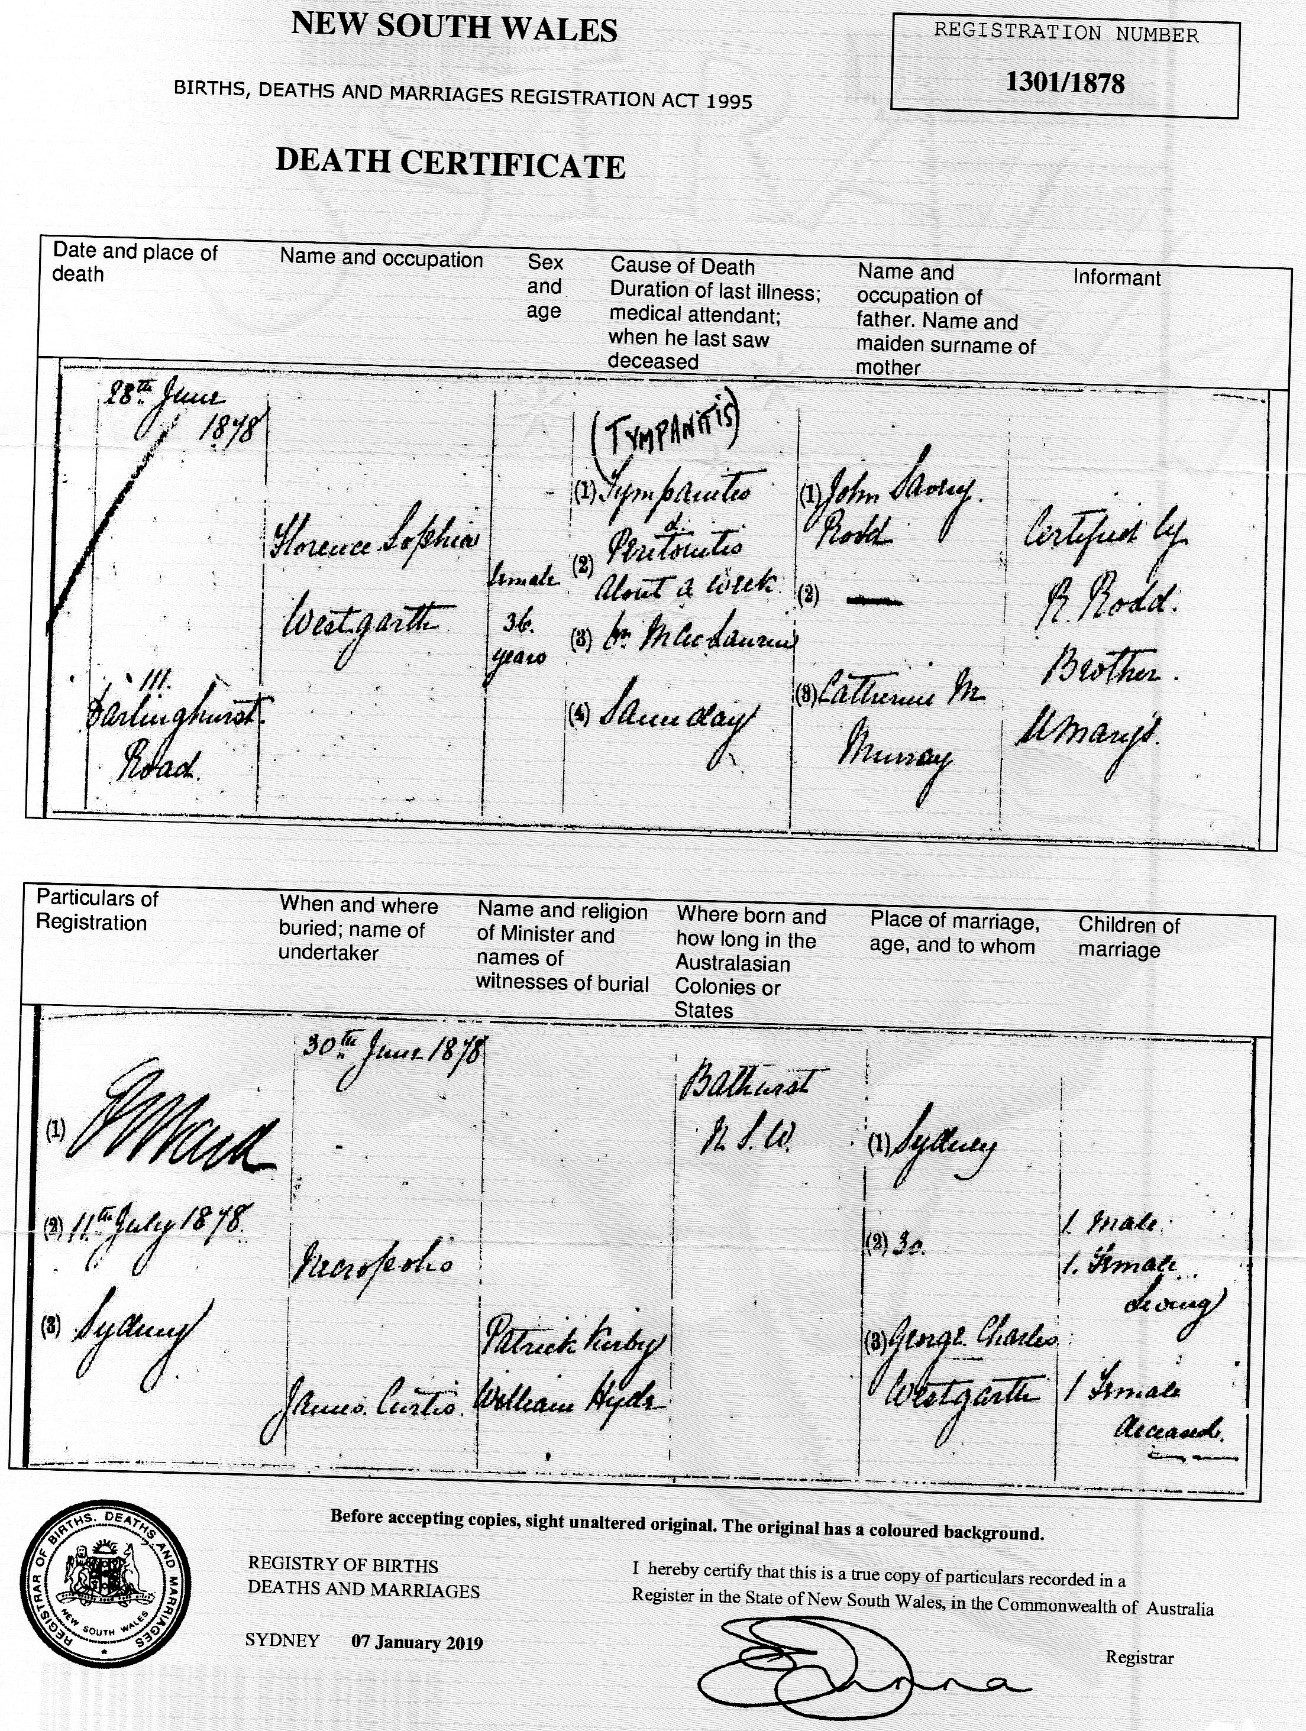 NEW SOUTH WALES
REGISTRATION NUMBER
1301/1878
BIRTHS, DEATHS AND MARRIAGES REGISTRATION ACT 1995
DEATH CERTIFICATE
Date and place of
death
Name and occupation
Sex
and
age
Cause of Death
Duration of last illness;
medical attendant;
when he last saw
deceased
Name and
occupation of
father. Name and
maiden surname of
mother
Informant
28th June
1878
111.
Darlinghurst
Road.
Florence Sophia
Westgarth
female
36.
years
(TYMPANITIS)
(1) Tympanites
&
(2) Peritonitis
about a week
(3) Dr MacLaurin
(4) Same day
(1) John Savery
Rodd
(2) —
(3) Catherine M
Murray
Certified by
R. Rodd.
Brother.
St Mary's.
Particulars of
Registration
When and where
buried; name of
undertaker
Name and religion
of Minister and
names of
witnesses of burial
Where born and
how long in the
Australasian
Colonies or
States
Place of marriage,
age, and to whom
Children of
marriage
(1)
(2) 11th July 1878.
(3) Sydney
30th June 1878
Necropolis
James Curtis.
Patrick Kirby
William Hyde
Bathurst
N. S. W.
(1) Sydney
(2) 30.
(3) George Charles
Westgarth
1. Male
1. Female
Living
1 Female
deceased.
Before accepting copies, sight unaltered original. The original has a coloured background.
REGISTRY OF BIRTHS
DEATHS AND MARRIAGES
SYDNEY 07 January 2019
I hereby certify that this is a true copy of particulars recorded in a
Register in the State of New South Wales, in the Commonwealth of Australia
Registrar
REGISTRAR OF BIRTHS. DEATHS AND MARRIAGES
NEW SOUTH WALES